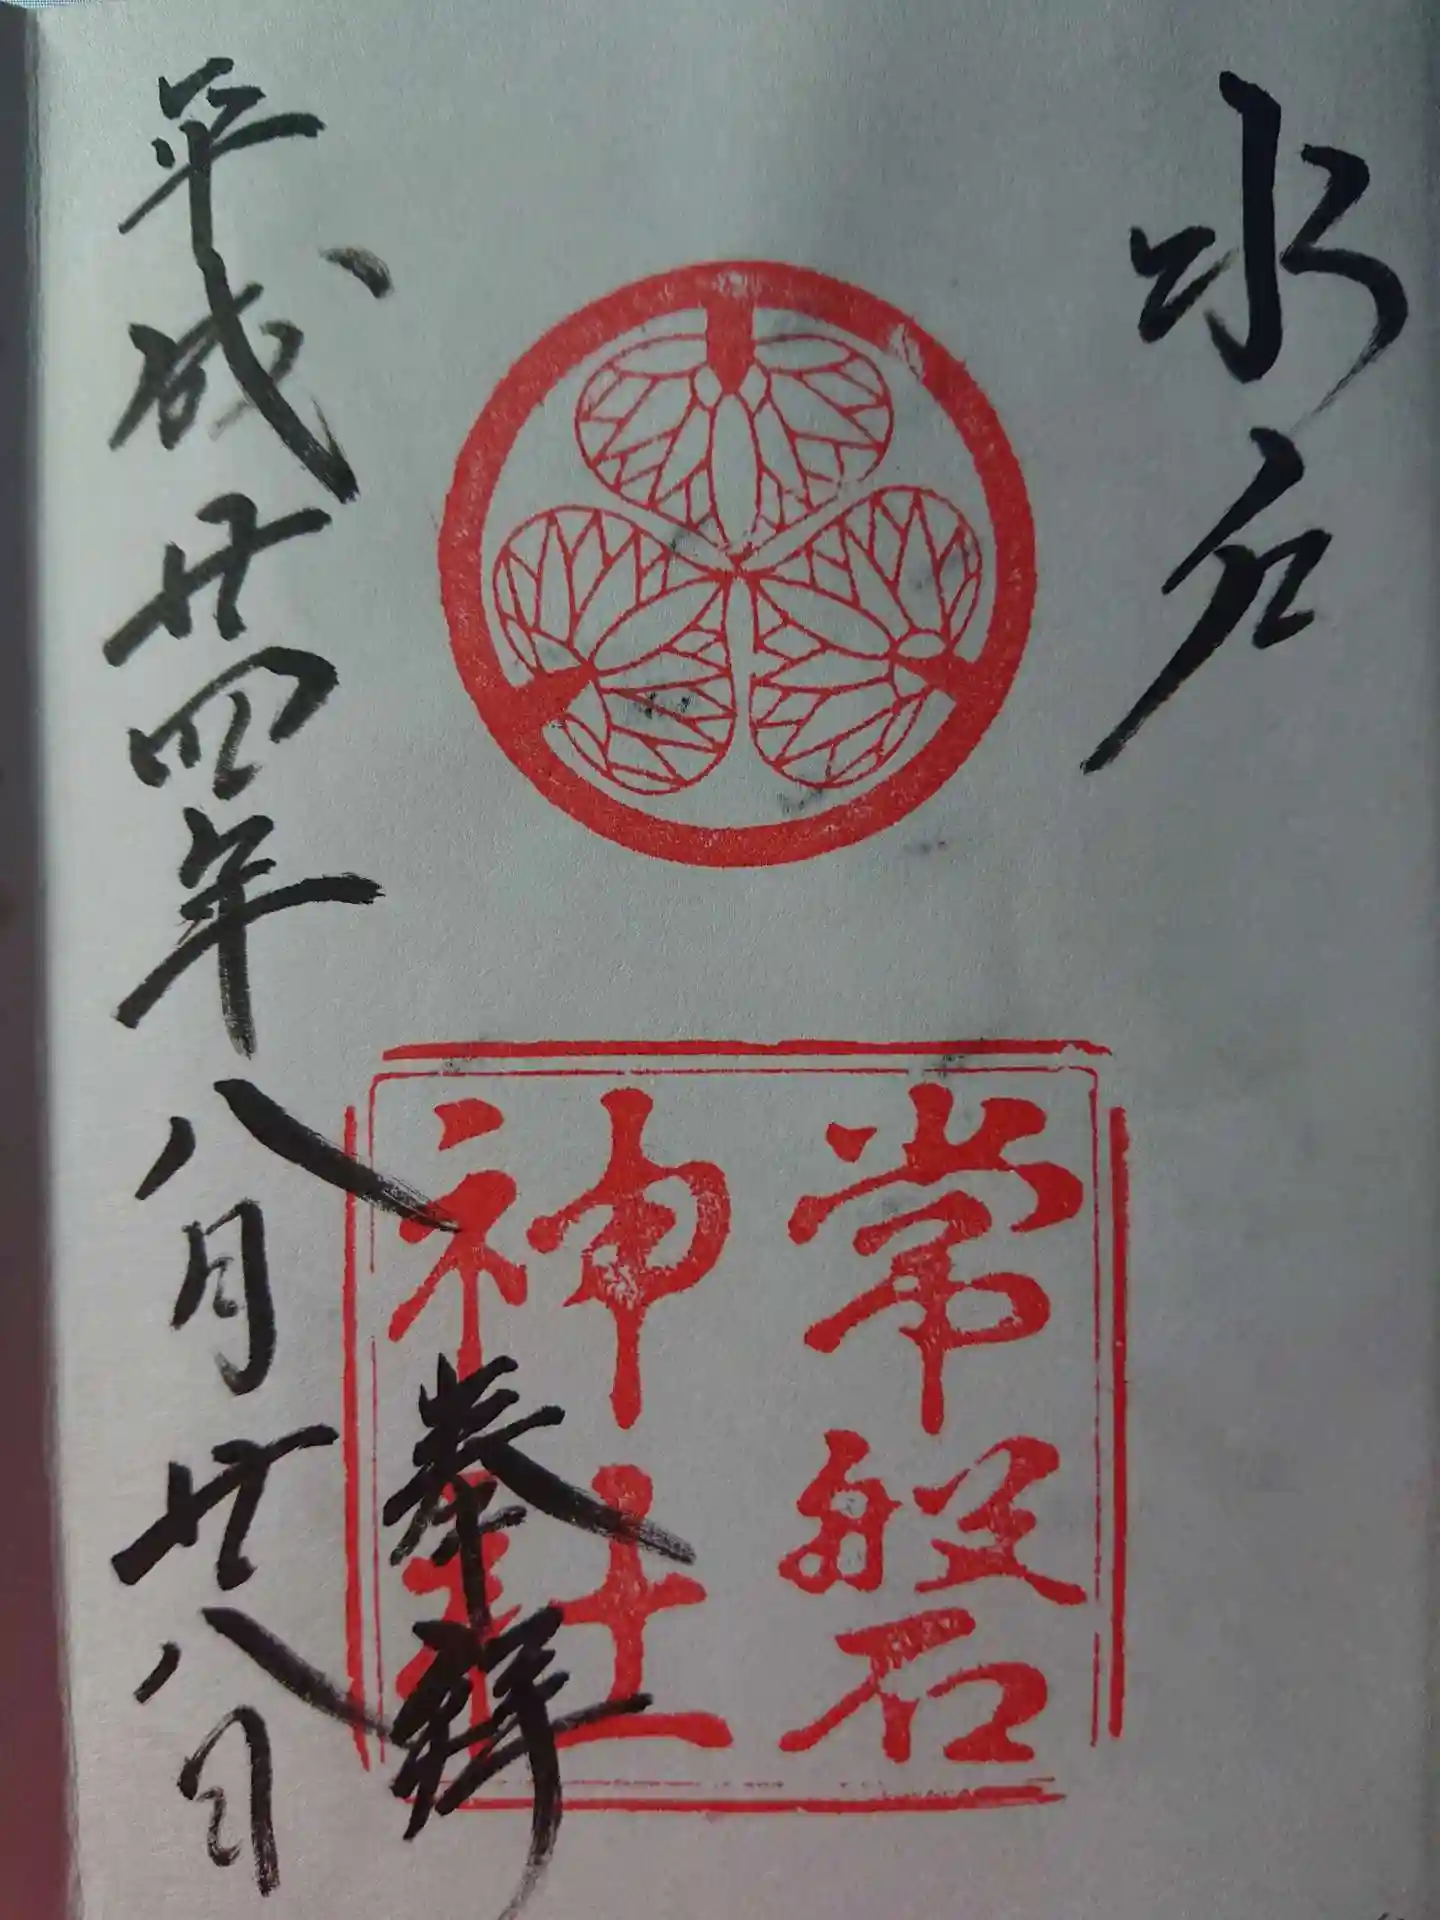 水戸
常磐
神社
奉拝
平成廿四年八月廿八日